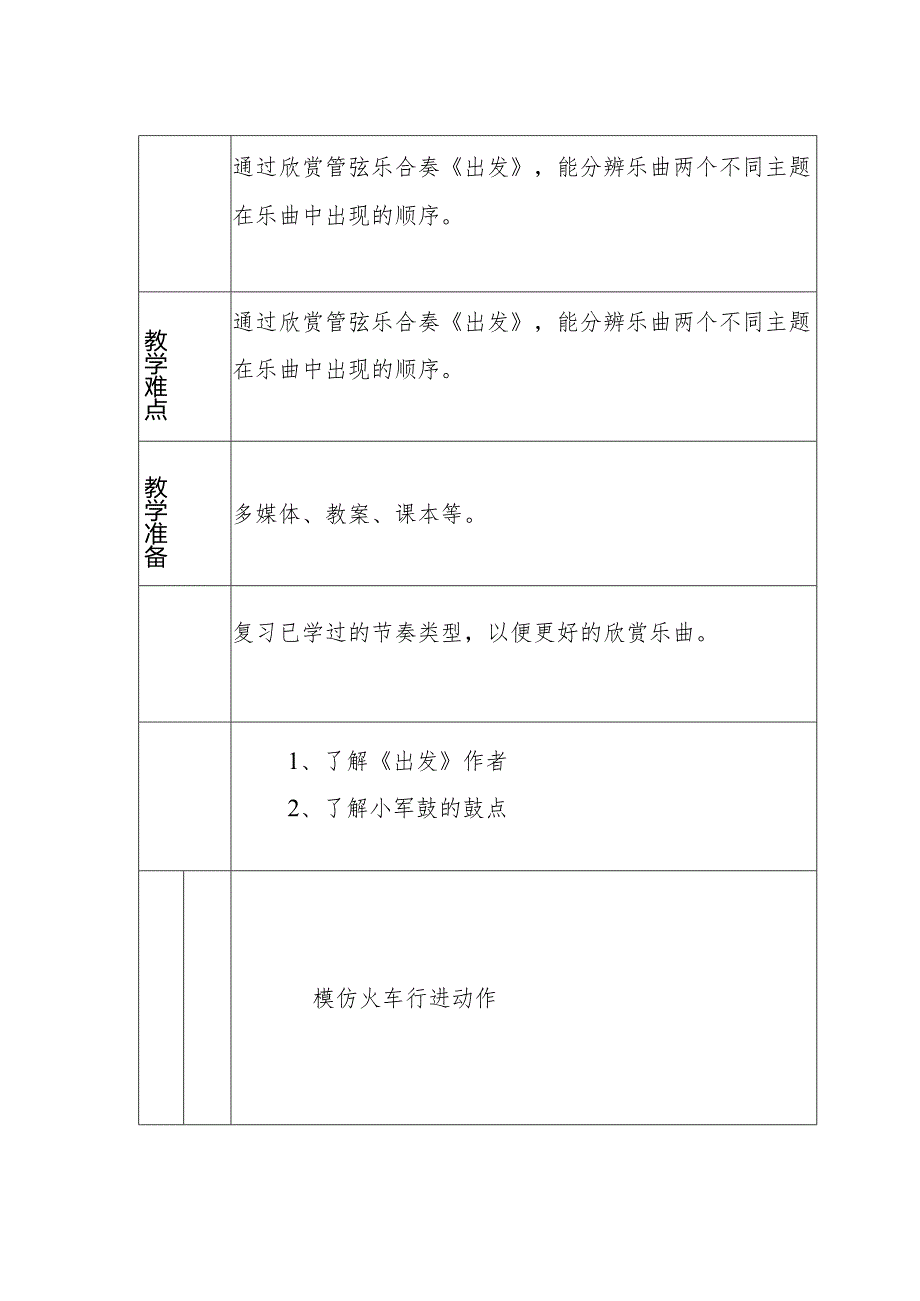 通过欣赏管弦乐合奏《出发》，能分辨乐曲两个不同主题
在乐曲中出现的顺序。
教学难点
通过欣赏管弦乐合奏《出发》，能分辨乐曲两个不同主题
在乐曲中出现的顺序。
教学准备
多媒体、教案、课本等。
复习已学过的节奏类型，以便更好的欣赏乐曲。
1、了解《出发》作者
2、了解小军鼓的鼓点
模仿火车行进动作